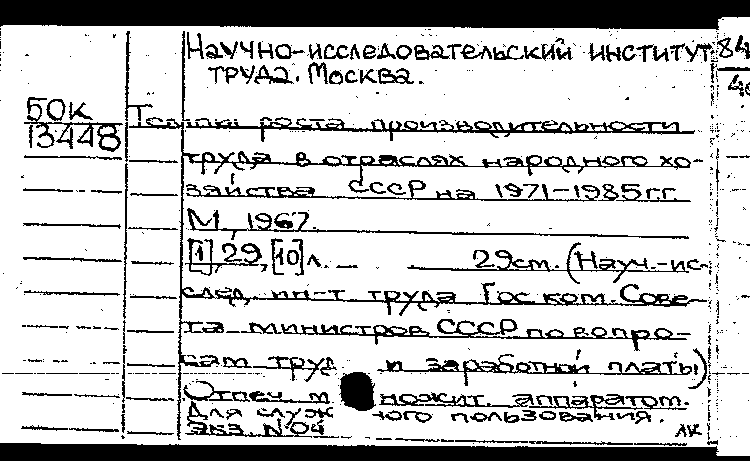 Научно-исследовательский институт 84
труда. Москва.
40
БОК
13448
Темпы роста производительности
труда в отраслях народного хо-
зяйства СССР на 1971-1985гг.
М., 1967.
[1], 29, [10] л. — 29см. (Науч.-ис-
след. ин-т труда Гос ком. Сове-
та министров СССР по вопро-
сам труд и заработной платы)
Отпеч. м ножит. аппаратом.
Для служ ного пользования.
Экз. N04
АК